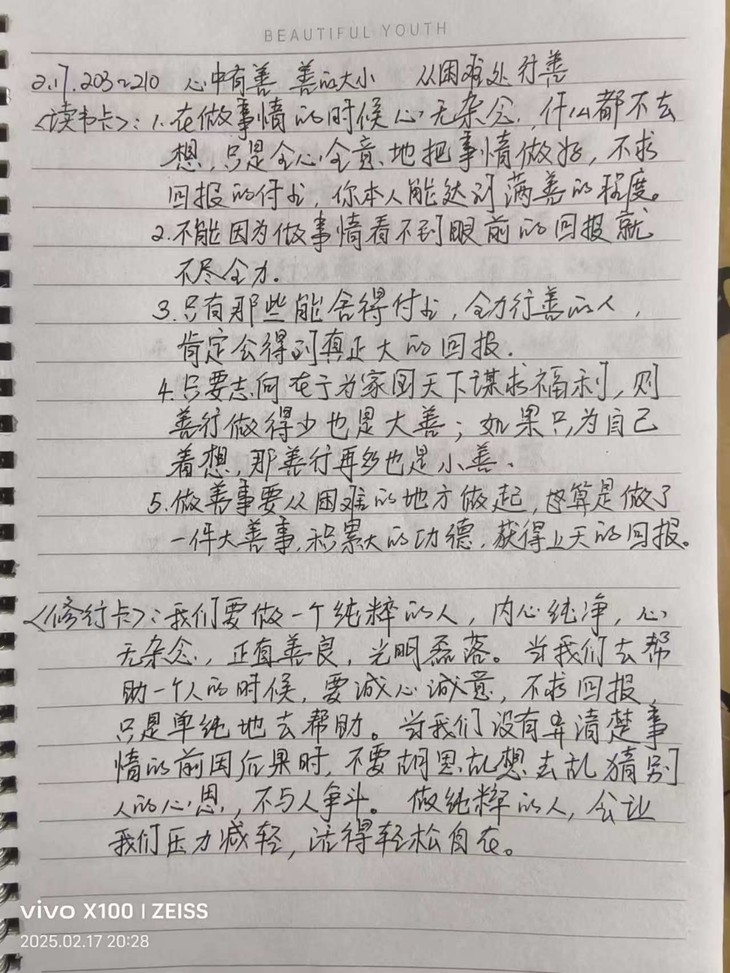 BEAUTIFUL YOUTH
2.17. 203~210 心中有善 善的大小 从困难处行善
<读书卡>: 1.在做事情的时候心无杂念,什么都不去
想,只是全心全意地把事情做好,不求
回报的付出,你本人能达到满善的程度。
2.不能因为做事情看不到眼前的回报就
不尽全力.
3.只有那些能舍得付出,全力行善的人,
肯定会得到真正大的回报.
4.只要志向在于为家国天下谋求福利,则
善行做得少也是大善;如果只为自己
着想,那善行再多也是小善.
5.做善事要从困难的地方做起,也算是做了
一件大善事,积累大的功德,获得上天的回报。
<修行卡>:我们要做一个纯粹的人,内心纯净,心
无杂念,正直善良,光明磊落。当我们去帮
助一个人的时候,要诚心诚意,不求回报,
只是单纯地去帮助。当我们没有弄清楚事
情的前因后果时,不要胡思乱想去乱猜别
人的心思,不与人争斗。做纯粹的人,会让
我们压力减轻,活得轻松自在。
vivo X100 | ZEISS
2025.02.17 20:28